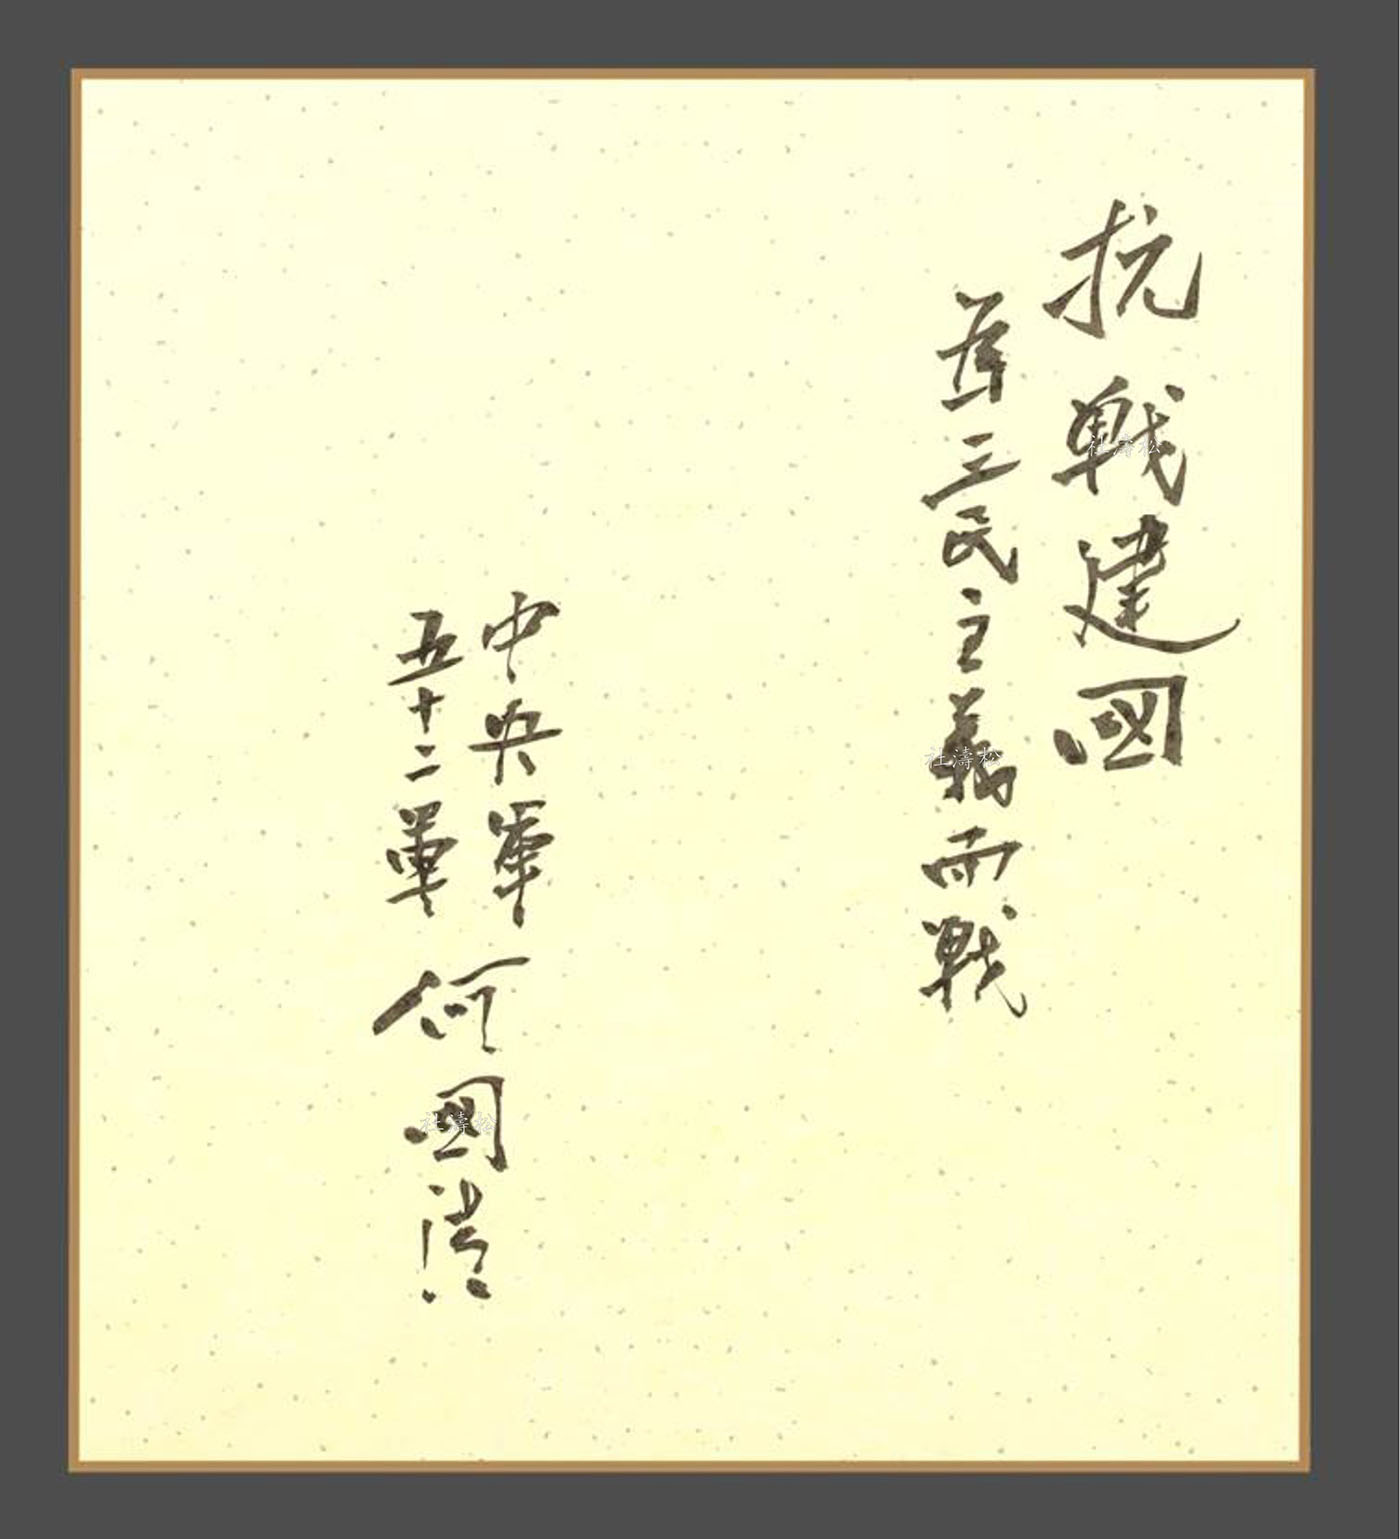 抗戰建國
為三民主義而戰
中央軍
五十二軍
何國
杜濤松
杜濤松
杜濤松